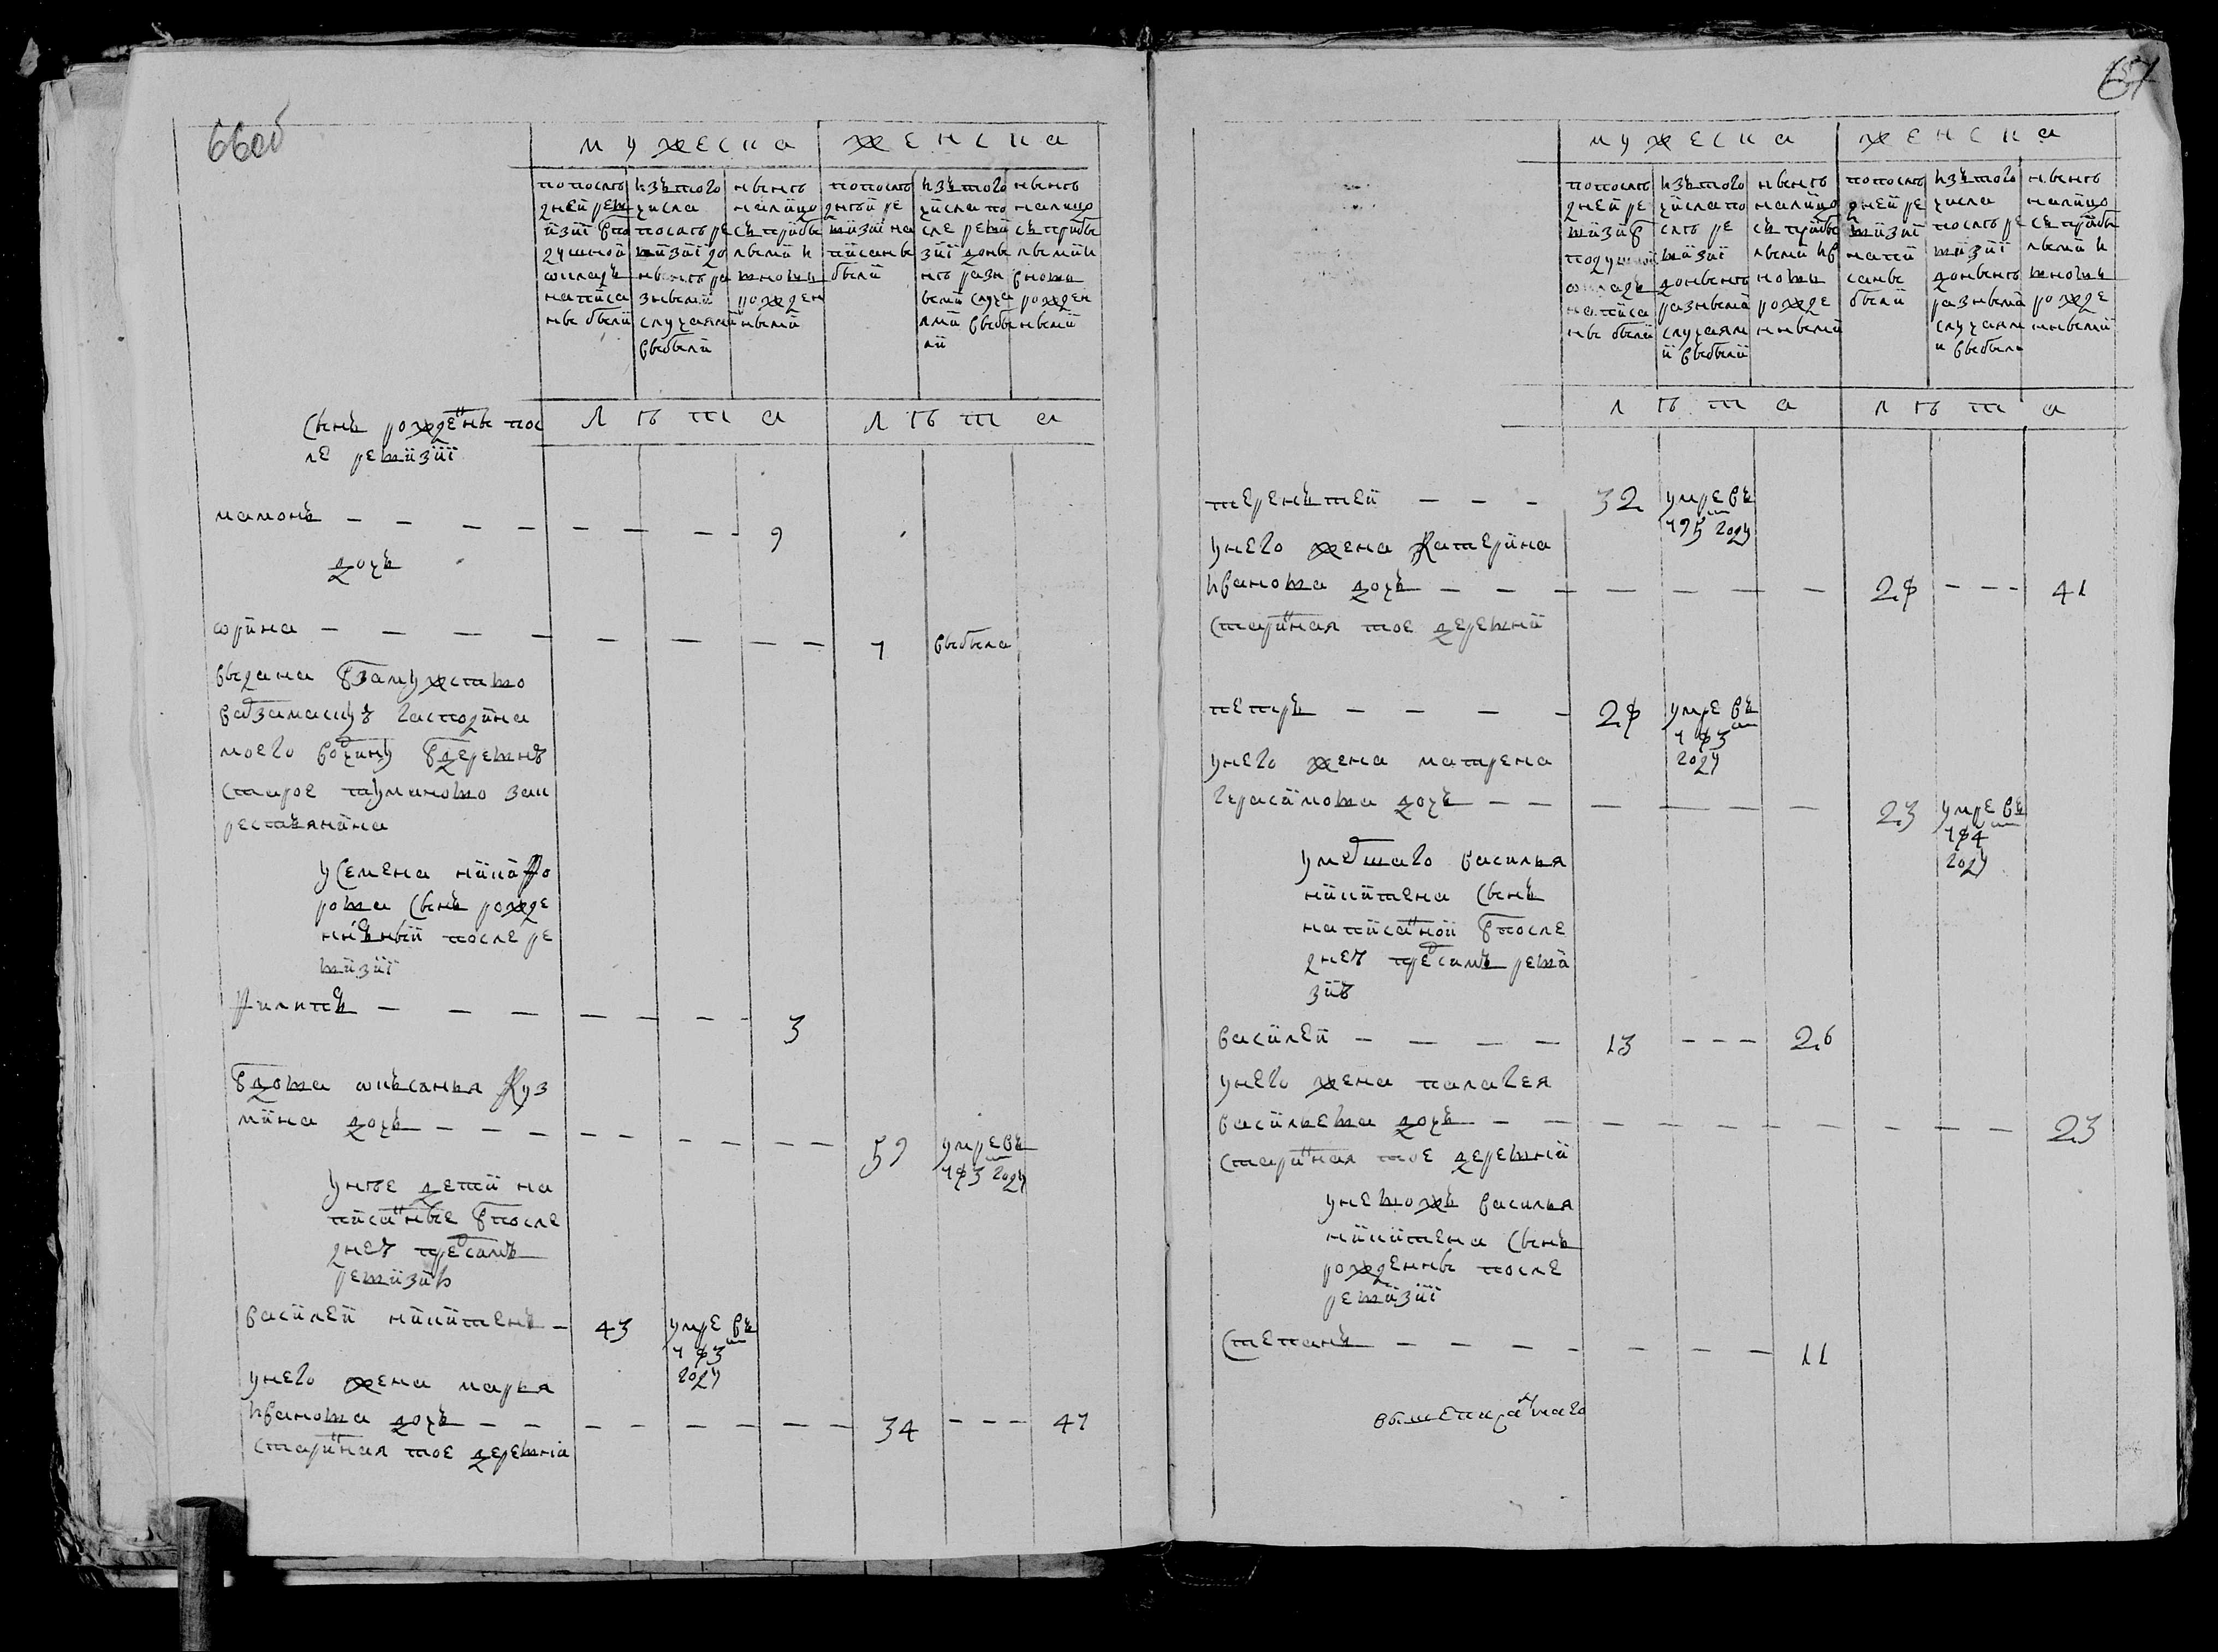 66об
мужеска женска
по после
дней рев
изіі впо
душной
окладъ
написа
ны были
изъ того
числа
после ре
визіі до
ныне ра
зными
случаями
выбыли
ныне
налицо
съ прибы
лыми и
вновь
рожден
ными
по после
дней ре
визіі на
писаны
были
изъ того
числа по
сле реви
зіі доны
не разн
ыми случа
ями выбы
ли
ныне
налицо
съ прибы
лыми и
вновь
рожден
ными
лѣта лѣта
сынъ рожденны пос
ле ревизіі
мамонъ 9
дочь
орина 7 выбыла
выдана взамужство
варзамаскуѣ гасподина
моего вочину вдеревнѣ
старое туманово зак
рестьянина
у семена никифо
рова сынъ рожде
нныный после ре
визіі
филипъ 3
вдова оксанья куз
мина дочь 59 умре въ
783м году
у нее дети на
писанные впосле
днеѣ пресамъ
ревизіѣ
василей никитенъ 43 умре въ
783м
году
у него жена марья
иванова дочь 34 47
старинная тое деревни
67
мужеска женска
по после
дней ре
визіі в
подушной
окладъ
написа
ны были
изъ того
числа по
сле ре
визіі
доныне
разными
случаям
и выбыли
ныне
налицо
съ прибы
лыми и в
новь
рожде
нными
по после
дней ре
визіі
напи
саны
были
изъ того
числа
после ре
визіі
доныне
разными
случаям
и выбыли
ныне
налицо
съ прибы
лыми и
вновь
рожде
нными
лѣта лѣта
терентей 32 умре въ
795м году
у него жена катерина
иванова дочь 28 41
старинная тое деревни
петръ 28 умре въ
783м
году
у него жена матрена
герасимова дочь 23 умре въ
784м
году
умершаго василья
никитена сынъ
написанной впосле
днеѣ пресамъ реви
зіѣ
василей 13 26
у него жена палагея
васильева дочь 23
старинная тое деревни
у невожъ василья
никитена сынъ
рожденны после
ревизіі
степанъ 11
вышеписаннаго